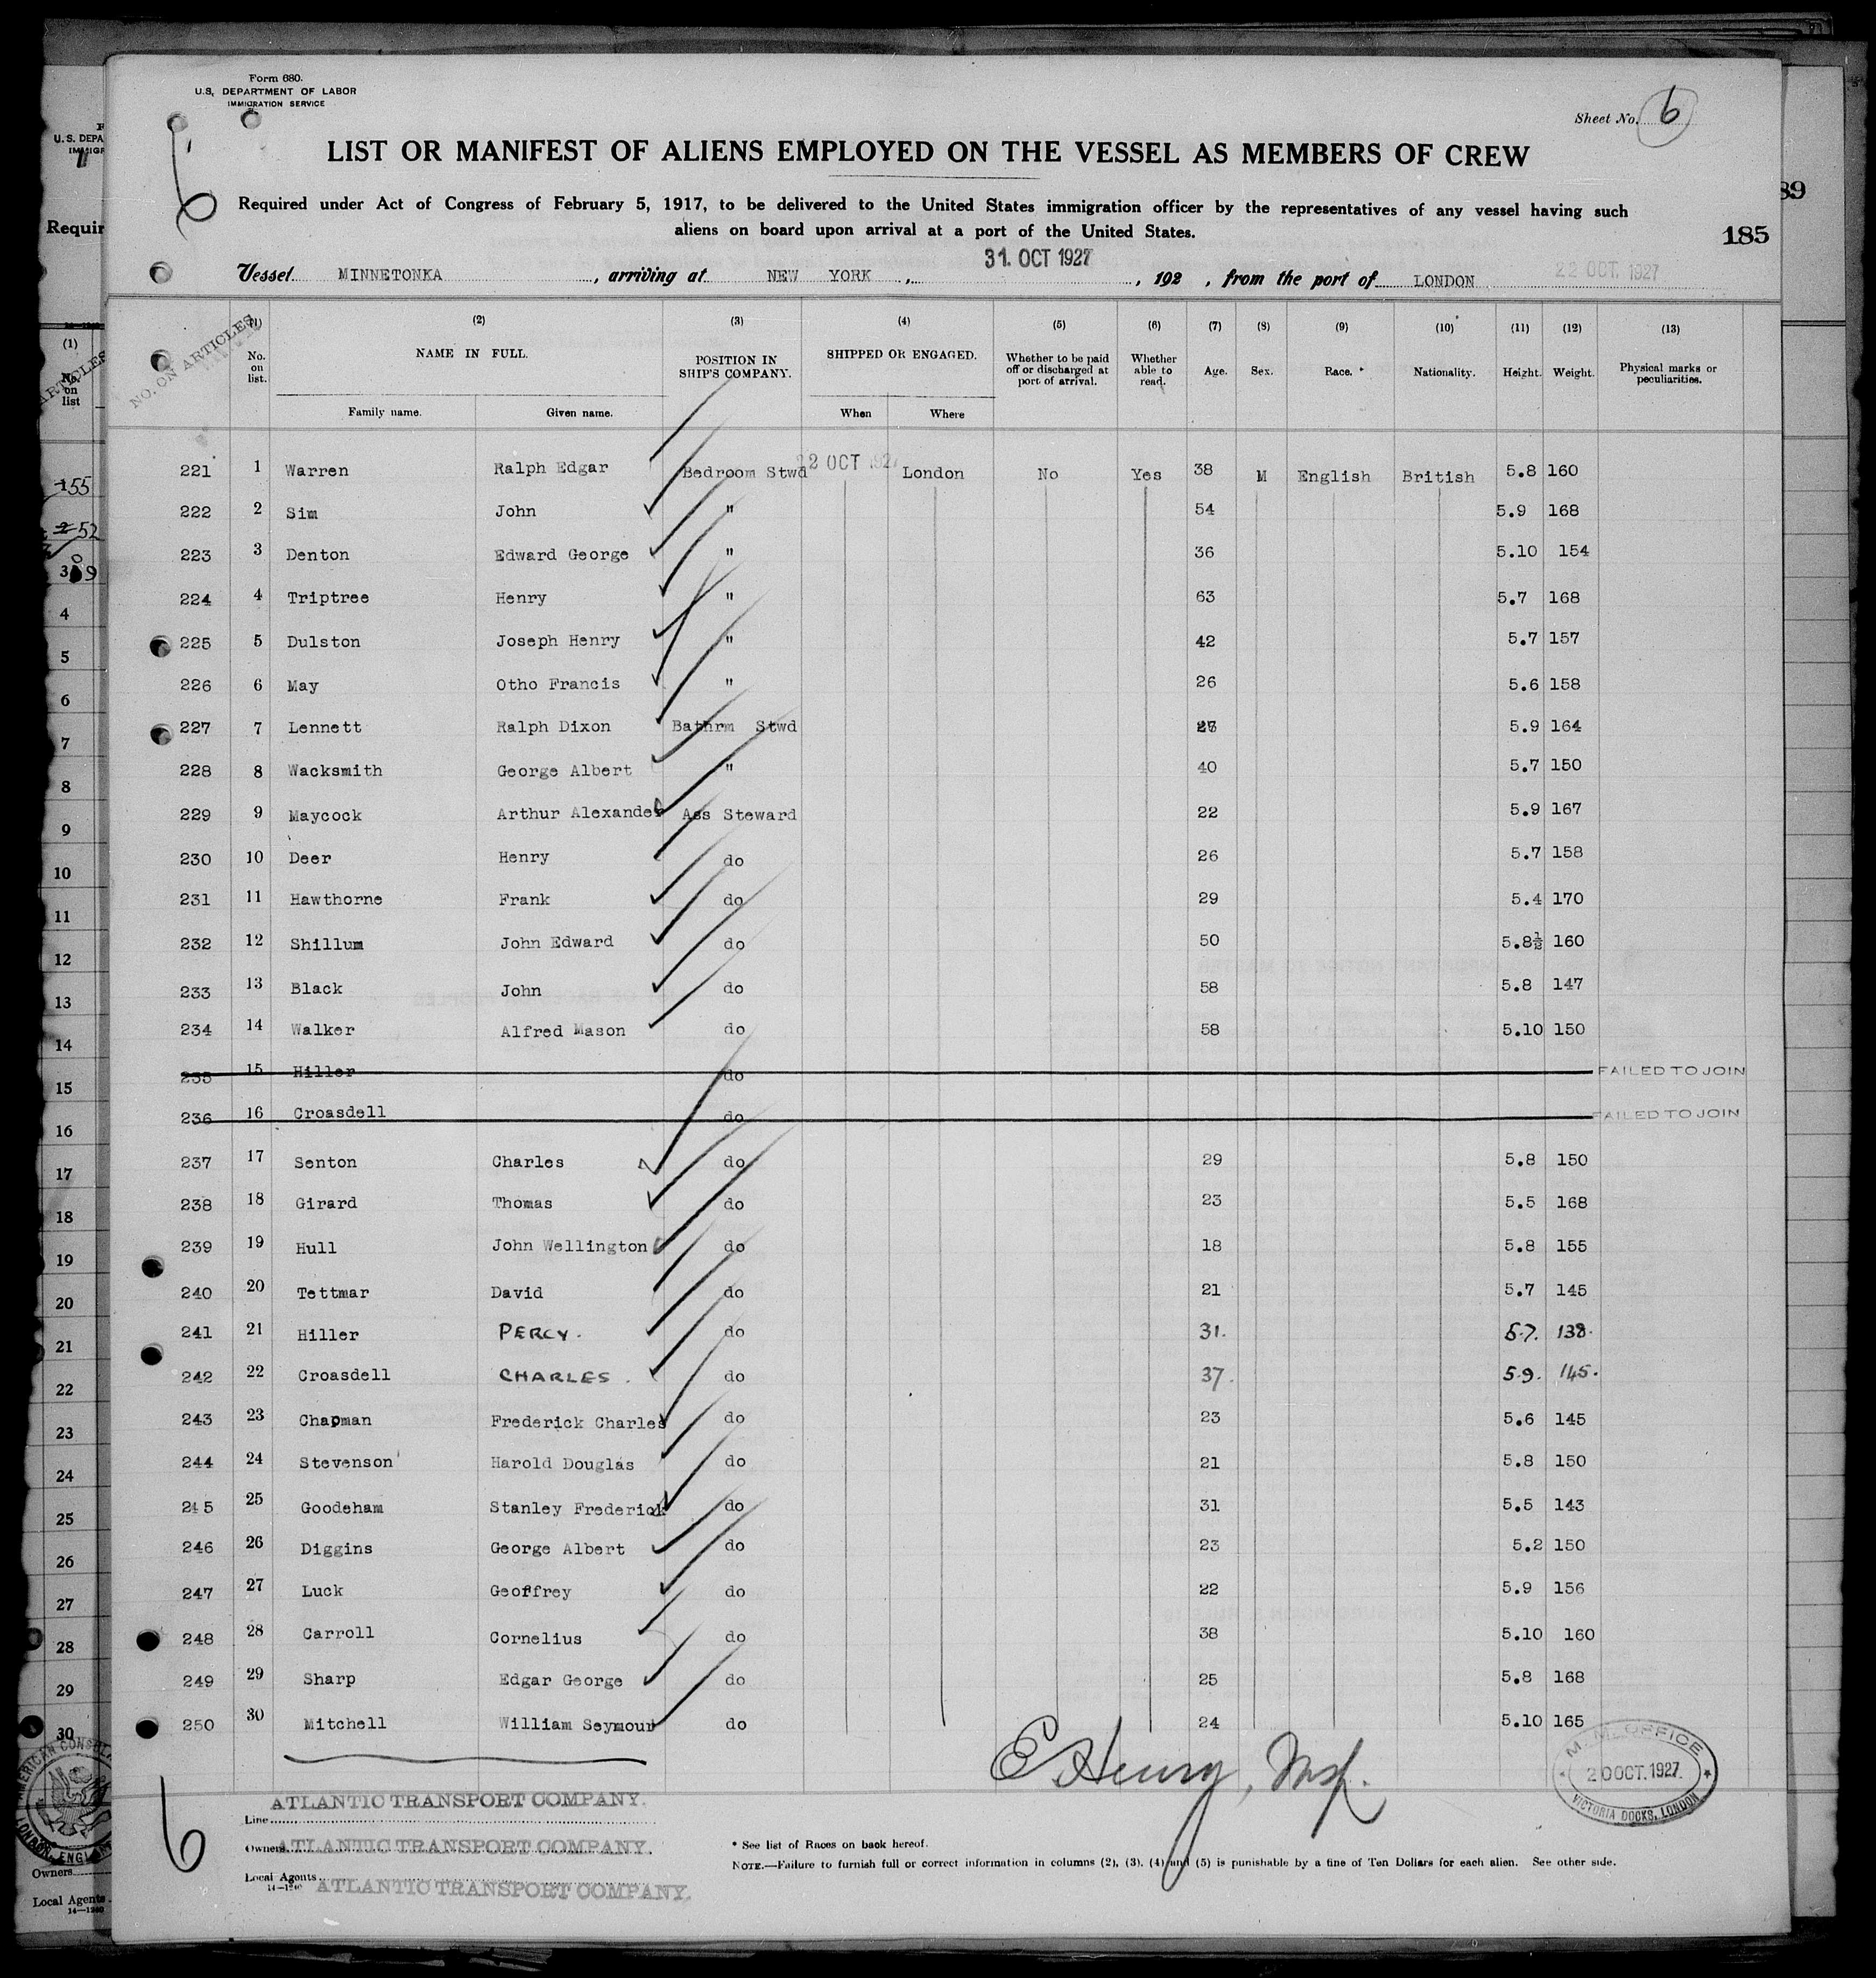 Form 680.
U.S. DEPARTMENT OF LABOR
IMMIGRATION SERVICE
Sheet No. 6
6
LIST OR MANIFEST OF ALIENS EMPLOYED ON THE VESSEL AS MEMBERS OF CREW
Required under Act of Congress of February 5, 1917, to be delivered to the United States immigration officer by the representatives of any vessel having such
aliens on board upon arrival at a port of the United States.
185
89
Vessel MINNETONKA, arriving at NEW YORK, 31. OCT 1927, 192 , from the port of LONDON 22 OCT. 1927
NO. ON ARTICLES
(1) (2) (3) (4) (5) (6) (7) (8) (9) (10) (11) (12) (13)
No. on list. NAME IN FULL. POSITION IN SHIP'S COMPANY. SHIPPED OR ENGAGED. Whether to be paid off or discharged at port of arrival. Whether able to read. Age. Sex. Race. * Nationality. Height. Weight. Physical marks or peculiarities.
Family name. Given name. When Where
221 1 Warren Ralph Edgar Bedroom Stwd 22 OCT 1927 London No Yes 38 M English British 5.8 160
222 2 Sim John " 54 5.9 168
223 3 Denton Edward George " 36 5.10 154
224 4 Triptree Henry " 63 5.7 168
225 5 Dulston Joseph Henry " 42 5.7 157
226 6 May Otho Francis " 26 5.6 158
227 7 Lennett Ralph Dixon Bathrm Stwd 5.9 164
228 8 Wacksmith George Albert " 40 5.7 150
229 9 Maycock Arthur Alexander Ass Steward 22 5.9 167
230 10 Deer Henry do 26 5.7 158
231 11 Hawthorne Frank do 29 5.4 170
232 12 Shillum John Edward do 50 5.8½ 160
233 13 Black John do 58 5.8 147
234 14 Walker Alfred Mason do 58 5.10 150
235 15 Hiller do FAILED TO JOIN
236 16 Croasdell do FAILED TO JOIN
237 17 Senton Charles do 29 5.8 150
238 18 Girard Thomas do 23 5.5 168
239 19 Hull John Wellington do 18 5.8 155
240 20 Tettmar David do 21 5.7 145
241 21 Hiller PERCY. do 31. 5.7. 138.
242 22 Croasdell CHARLES. do 37. 5.9. 145.
243 23 Chapman Frederick Charles do 23 5.6 145
244 24 Stevenson Harold Douglas do 21 5.8 150
245 25 Goodeham Stanley Frederick do 31 5.5 143
246 26 Diggins George Albert do 23 5.2 150
247 27 Luck Geoffrey do 22 5.9 156
248 28 Carroll Cornelius do 38 5.10 160
249 29 Sharp Edgar George do 25 5.8 168
250 30 Mitchell William Seymour do 24 5.10 165
E Henry,
M.M. OFFICE
20 OCT. 1927.
VICTORIA DOCKS, LONDON
6
Line ATLANTIC TRANSPORT COMPANY.
Owners ATLANTIC TRANSPORT COMPANY.
Local Agents ATLANTIC TRANSPORT COMPANY.
* See list of Races on back hereof.
NOTE.—Failure to furnish full or correct information in columns (2), (3), (4) and (5) is punishable by a fine of Ten Dollars for each alien. See other side.
U.S. DEPA
IMMIGR
Requir
(1)
No. on list
155
2 52
3
4
5
6
7
8
9
10
11
12
13
14
15
16
17
18
19
20
21
22
23
24
25
26
27
28
29
30
AMERICAN CONSUL
LONDON, ENGLAN
Owners
Local Agents
14—1240